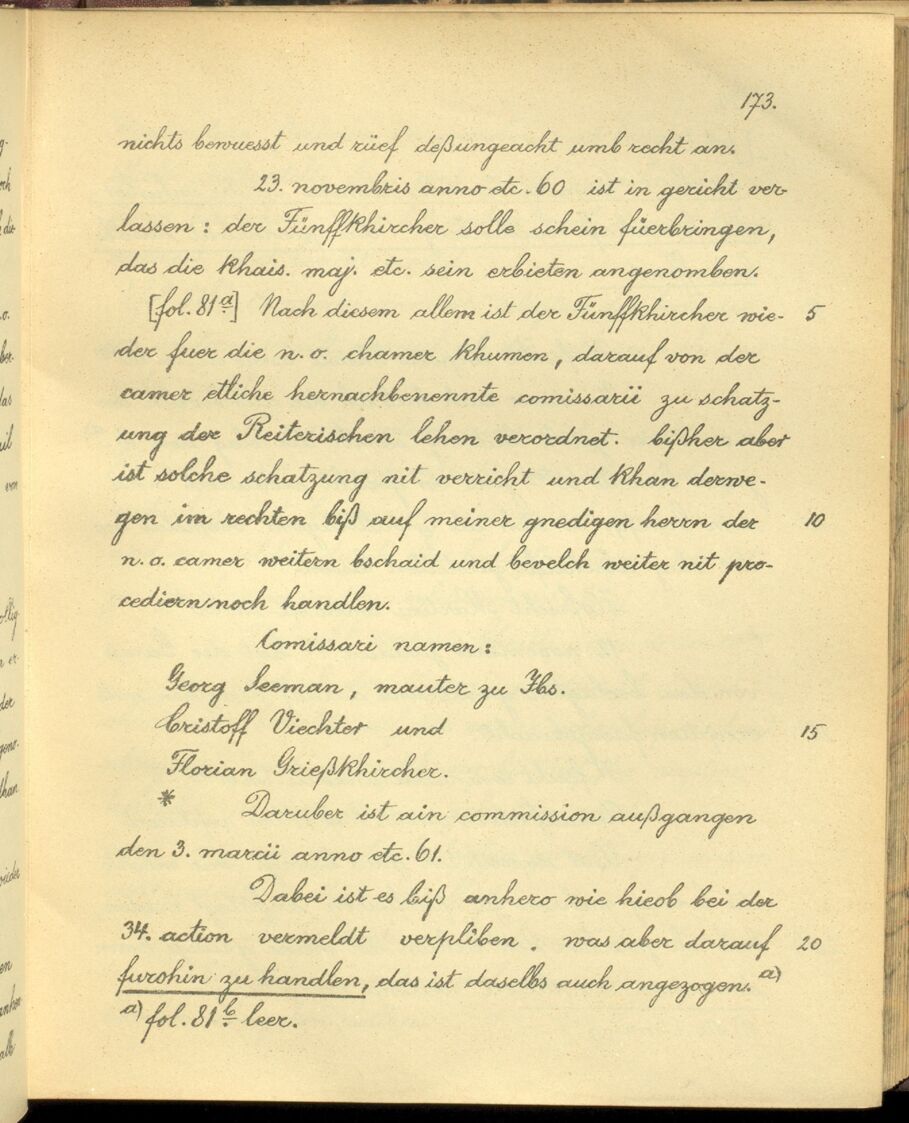 173.
nichts bewuesst und rüef deßungeacht umb recht an.
23. novembris anno etc. 60 ist in gericht ver-
lassen: der Fünffkhircher solle schein füerbringen,
das die khais. maj. etc. sein erbieten angenomben.
[fol. 81a] Nach diesem allem ist der Fünffkhircher wie- 5
der fuer die n. o. chamer khumen, darauf von der
camer etliche hernachbenennte comissarii zu schatz-
ung der Reiterischen lehen verordnet. bißher aber
ist solche schatzung nit verricht und khan derwe-
gen im rechten biß auf meiner gnedigen herrn der 10
n. o. camer weitern bschaid und bevelch weiter nit pro-
cediern noch handlen.
Comissari namen:
Georg Seeman, mauter zu Ibs.
Cristoff Viechter und 15
Florian Grießkhircher.
* Daruber ist ain commission außgangen
den 3. marcii anno etc. 61.
Dabei ist es biß anhero wie hieob bei der
34. action vermeldt verpliben. was aber darauf 20
furohin zu handlen, das ist daselbs auch angezogen. a)
a) fol. 81b leer.